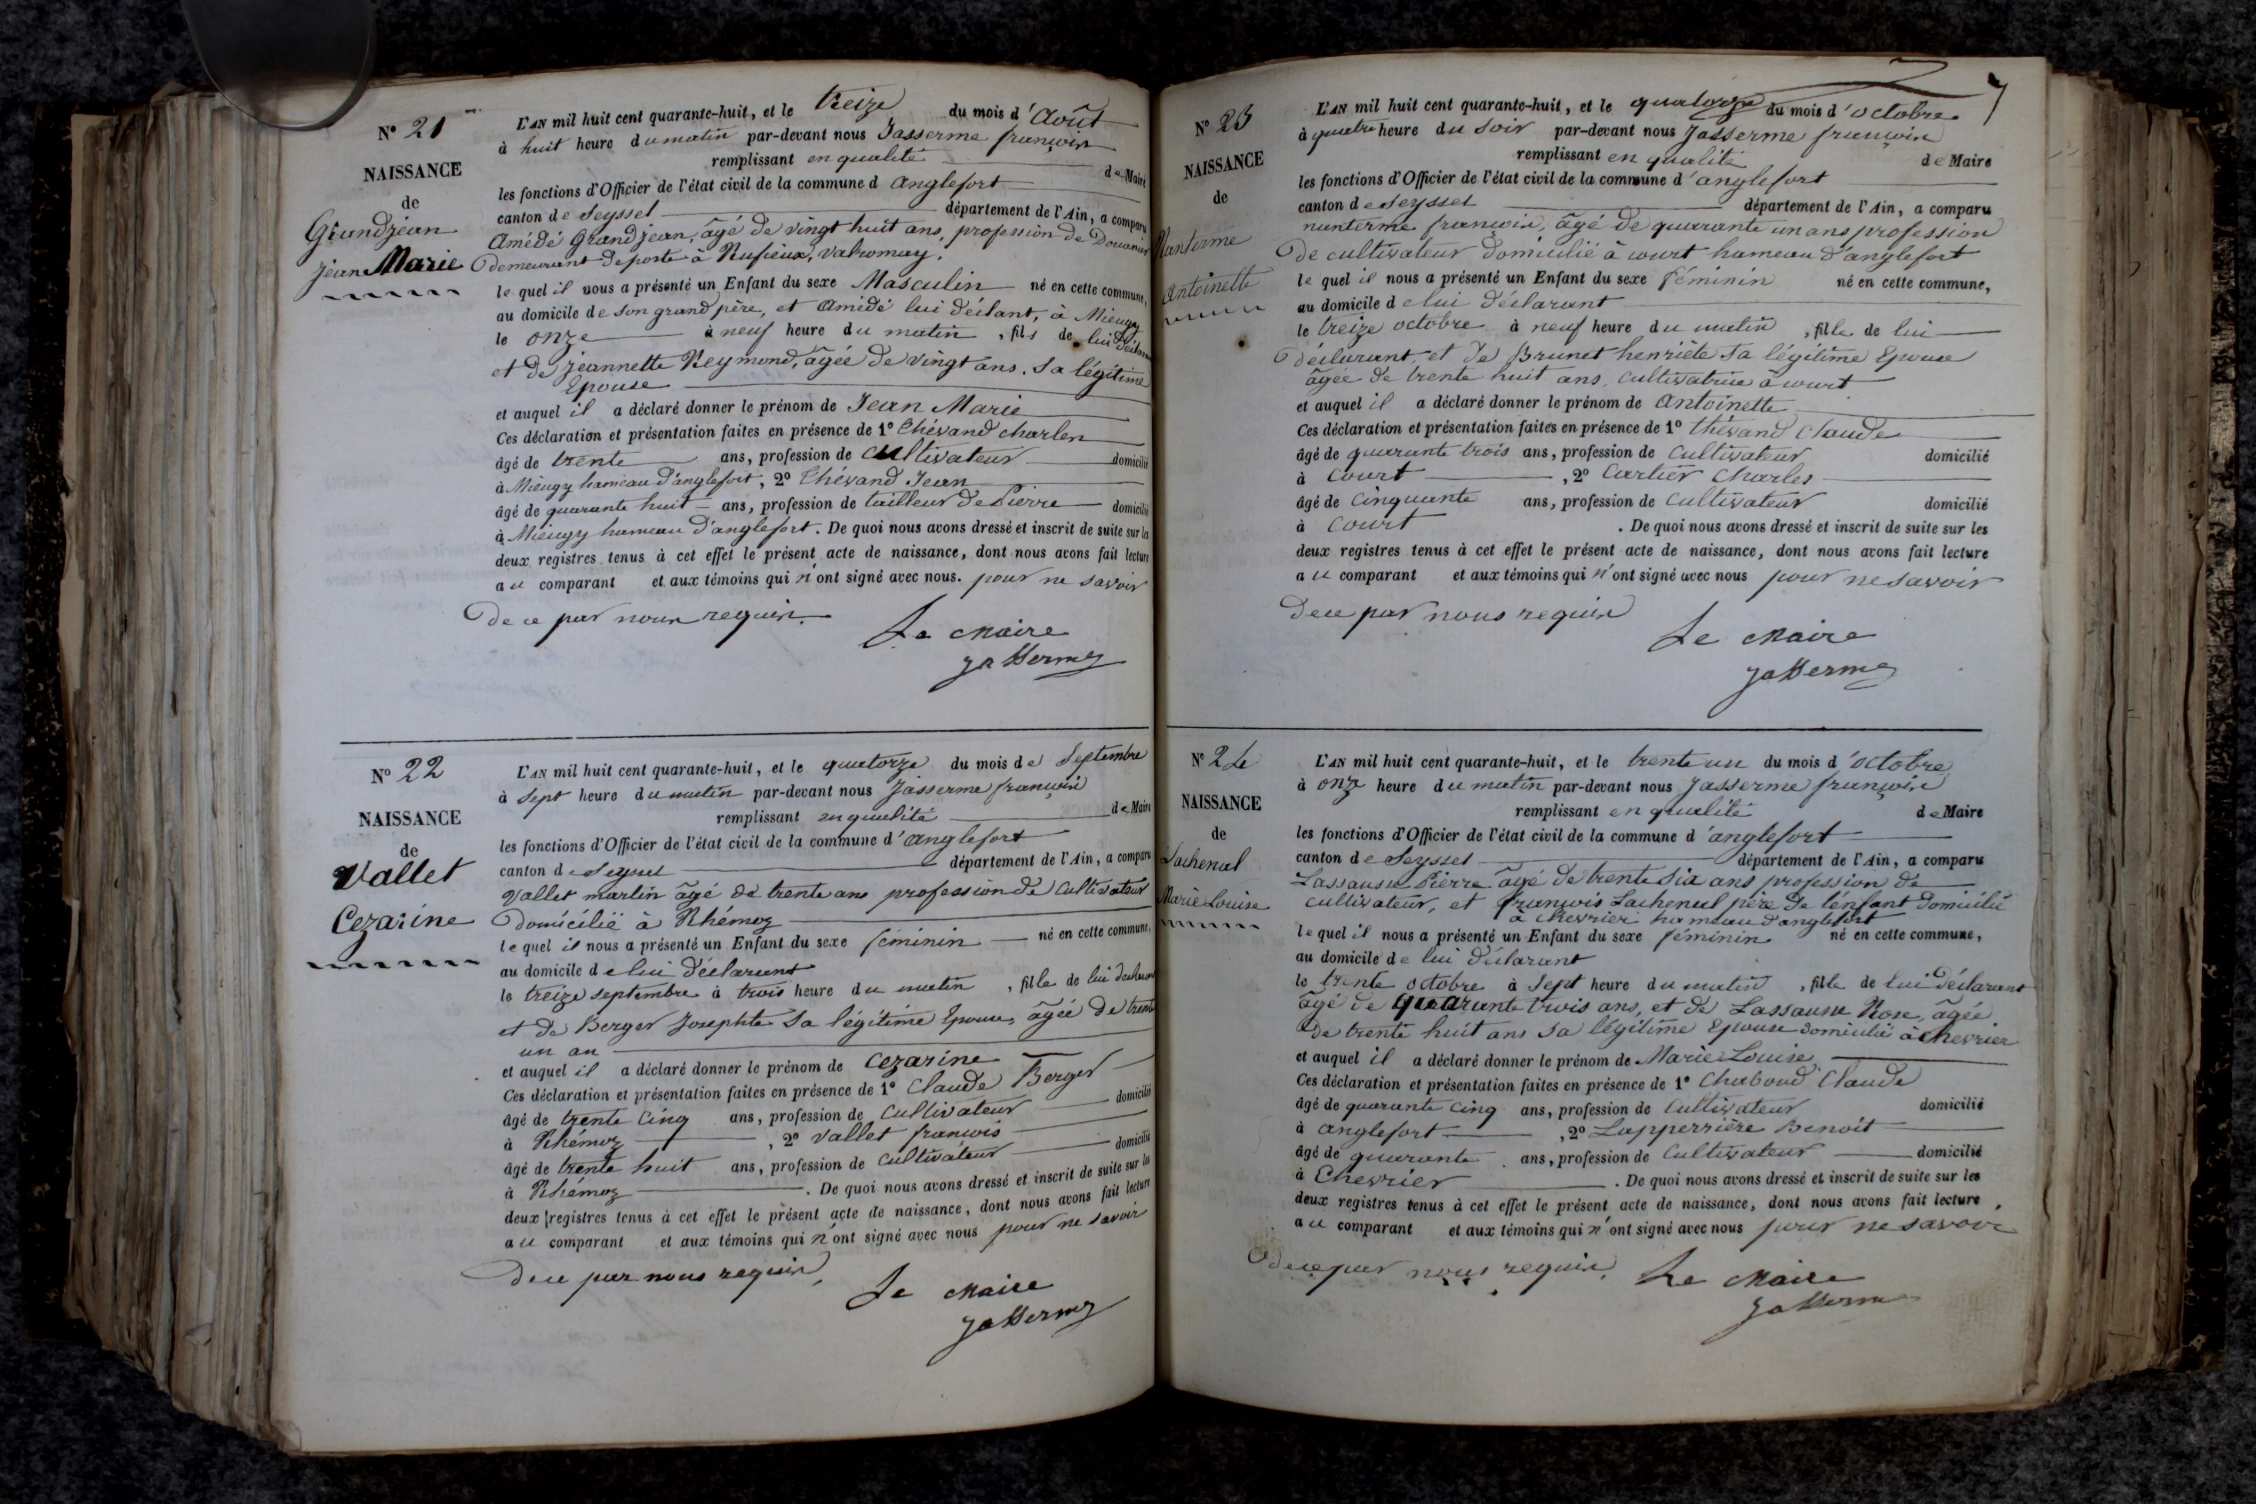 N° 21
NAISSANCE
de
Grandjean
Jean Marie
L'AN mil huit cent quarante-huit, et le treize du mois d'Août
à huit heure du matin par-devant nous Jasserme françois
remplissant en qualité de Maire
les fonctions d'Officier de l'état civil de la commune d anglefort
canton de Seyssel département de l'Ain, a comparu
Amédé Grandjean, âgé de vingt huit ans, profession de Douanier
demeurant de poste à Rufieux, valromay.
le quel il nous a présenté un Enfant du sexe Masculin né en cette commune,
au domicile de son grand père, et Amédé lui déclant, à Mieugy
le onze à neuf heure du matin, fils de lui déclarant
et de jeannette Reymond, âgée de vingt ans. sa légitime
Epouse
et auquel il a déclaré donner le prénom de Jean Marie
Ces déclaration et présentation faites en présence de 1° Thévand charles
âgé de trente ans, profession de cultivateur domicilié
à Mieugy hameau d'anglefort, 2° Thévand Jean
âgé de quarante huit ans, profession de tailleur de Pierre domicilié
à Mieugy hameau d'anglefort. De quoi nous avons dressé et inscrit de suite sur les
deux registres tenus à cet effet le présent acte de naissance, dont nous avons fait lecture
au comparant et aux témoins qui n'ont signé avec nous. pour ne savoir
de ce par nous requis.
Le Maire
Jasserme
N° 22
NAISSANCE
de
Vallet
Cezarine
L'AN mil huit cent quarante-huit, et le quatorze du mois de Septembre
à sept heure du matin par-devant nous Jasserme françois
remplissant en qualité de Maire
les fonctions d'Officier de l'état civil de la commune d'anglefort
canton de Seyssel département de l'Ain, a comparu
Vallet martin âgé de trente ans profession de Cultivateur
domicilié à Rhémoz
le quel il nous a présenté un Enfant du sexe féminin né en cette commune,
au domicile de lui déclarant
le treize septembre à trois heure du matin, fille de lui declarant
et de Berger Josephte sa légitime Epouse, âgée de trente
un an
et auquel il a déclaré donner le prénom de Cezarine
Ces déclaration et présentation faites en présence de 1° Claude Berger
âgé de trente cinq ans, profession de cultivateur domicilié
à Rhémoz, 2° Vallet françois
âgé de trente huit ans, profession de cultivateur domicilié
à Rhémoz. De quoi nous avons dressé et inscrit de suite sur les
deux registres tenus à cet effet le présent acte de naissance, dont nous avons fait lecture
au comparant et aux témoins qui n'ont signé avec nous pour ne savoir
de ce par nous requis,
Le Maire
Jasserme
7
N° 23
NAISSANCE
de
Nanterme
Antoinette
L'AN mil huit cent quarante-huit, et le quatorze du mois d'octobre
à quatre heure du soir par-devant nous Jasserme françois
remplissant en qualité de Maire
les fonctions d'Officier de l'état civil de la commune d'anglefort
canton de Seyssel département de l'Ain, a comparu
nanterme françois, âgé de quarante un ans profession
de cultivateur domicilié à court hameau d'anglefort
le quel il nous a présenté un Enfant du sexe féminin né en cette commune,
au domicile de lui déclarant
le treize octobre à neuf heure du matin, fille de lui
déclarant, et de Brunet henriète sa légitime Epouse
âgée de trente huit ans, cultivatrice à court
et auquel il a déclaré donner le prénom de Antoinette
Ces déclaration et présentation faites en présence de 1° Thévand Claude
âgé de quarante trois ans, profession de Cultivateur domicilié
à Court, 2° Cartier Charles
âgé de cinquante ans, profession de cultivateur domicilié
à Court. De quoi nous avons dressé et inscrit de suite sur les
deux registres tenus à cet effet le présent acte de naissance, dont nous avons fait lecture
au comparant et aux témoins qui n'ont signé avec nous pour ne savoir
de ce par nous requis
Le Maire
Jasserme
N° 24
NAISSANCE
de
Lachenal
Marie Louise
L'AN mil huit cent quarante-huit, et le trente un du mois d'octobre
à onze heure du matin par-devant nous Jasserme françois
remplissant en qualité de Maire
les fonctions d'Officier de l'état civil de la commune d'anglefort
canton de Seyssel département de l'Ain, a comparu
Lassausse Pierre âgé de trente six ans profession de
cultivateur, et françois Lachenal père de l'enfant domicilié
à Chevrier hameau d'anglefort
le quel il nous a présenté un Enfant du sexe féminin né en cette commune,
au domicile de lui déclarant
le trente octobre à Sept heure du matin, fille de lui déclarant
âgé de quarante trois ans, et de Lassausse Rose, âgée
de trente huit ans sa légitime Epouse domicilié à Chevrier
et auquel il a déclaré donner le prénom de Marie Louise
Ces déclaration et présentation faites en présence de 1° Chaboud Claude
âgé de quarante cinq ans, profession de Cultivateur domicilié
à anglefort, 2° Lapperrière Benoit
âgé de quarante ans, profession de Cultivateur domicilié
à Chevrier. De quoi nous avons dressé et inscrit de suite sur les
deux registres tenus à cet effet le présent acte de naissance, dont nous avons fait lecture
au comparant et aux témoins qui n'ont signé avec nous pour ne savoir
de ce par nous requis.
Le Maire
Jasserme